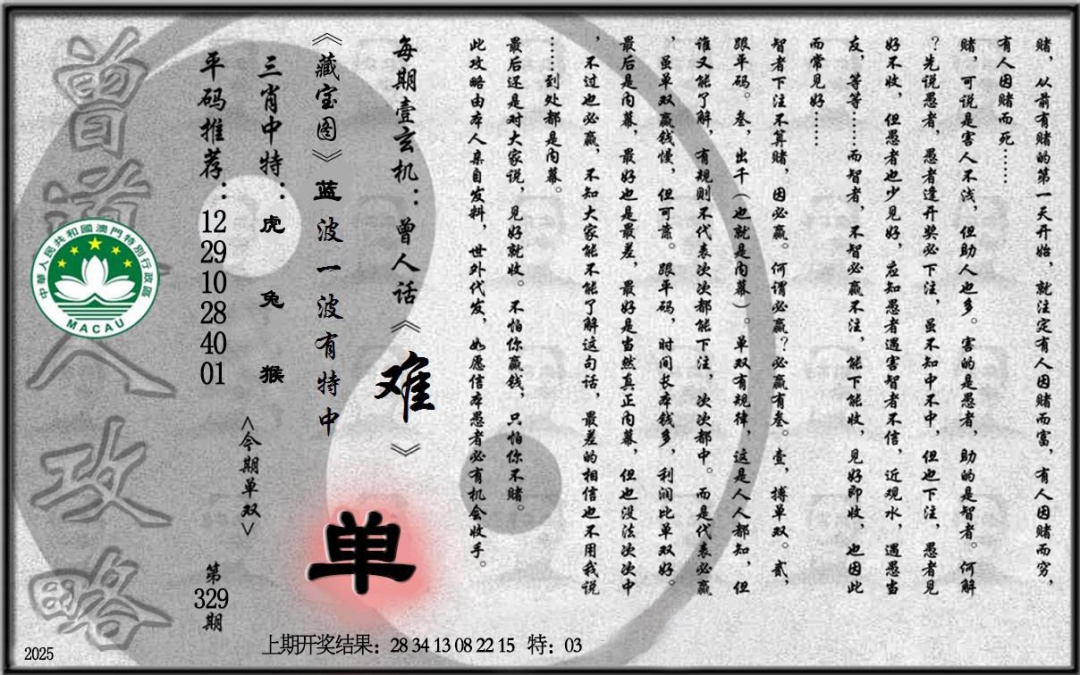 赌，从前有赌的第一天开始，就注定有人因赌而富，有人因赌而穷，
有人因赌而死……
赌，可说是害人不浅，但助人也多。害的是愚者，助的是智者。何解
？先说愚者，愚者逢开奖必下注，虽不知中不中，但也下注，愚者见
好不收，但愚者也少见好，应知愚者遇害智者不信，近观水，遇愚当
友，等等……而智者，不智必赢不注，能下能收，见好即收，也因此
而常见好……
智者下注不算赌，因必赢。何谓必赢？必赢有叁。壹，搏单双。贰，
跟单码。叁，出千（也就是内幕）。单双有规律，这是人人都知，但
谁又能了解，有规则不代表次次都能下注，次次都中。而是代表必赢
，虽单双赢钱慢，但可靠。跟单码，时间长本钱多，利润比单双好。
最后是内幕，最好也是最差，最好是当然真正内幕，但也没法次次中
，不过也必赢，不知大家能不能了解这句话，最差的相信也不用我说
……到处都是内幕。
最后还是对大家说，见好就收。不怕你赢钱，只怕你不赌。
此攻略由本人亲自发料，世外代发，如愿信本愚者必有机会收手。
每期壹玄机：曾人话《难》
《藏宝图》蓝波一波有特中
单
三肖中特：虎 兔 猴
<今期单双>
平码推荐：12 29 10 28 40 01
第329期
曾道人攻略
中華人民共和國澳門特別行政區
MACAU
上期开奖结果：28 34 13 08 22 15 特：03
2025